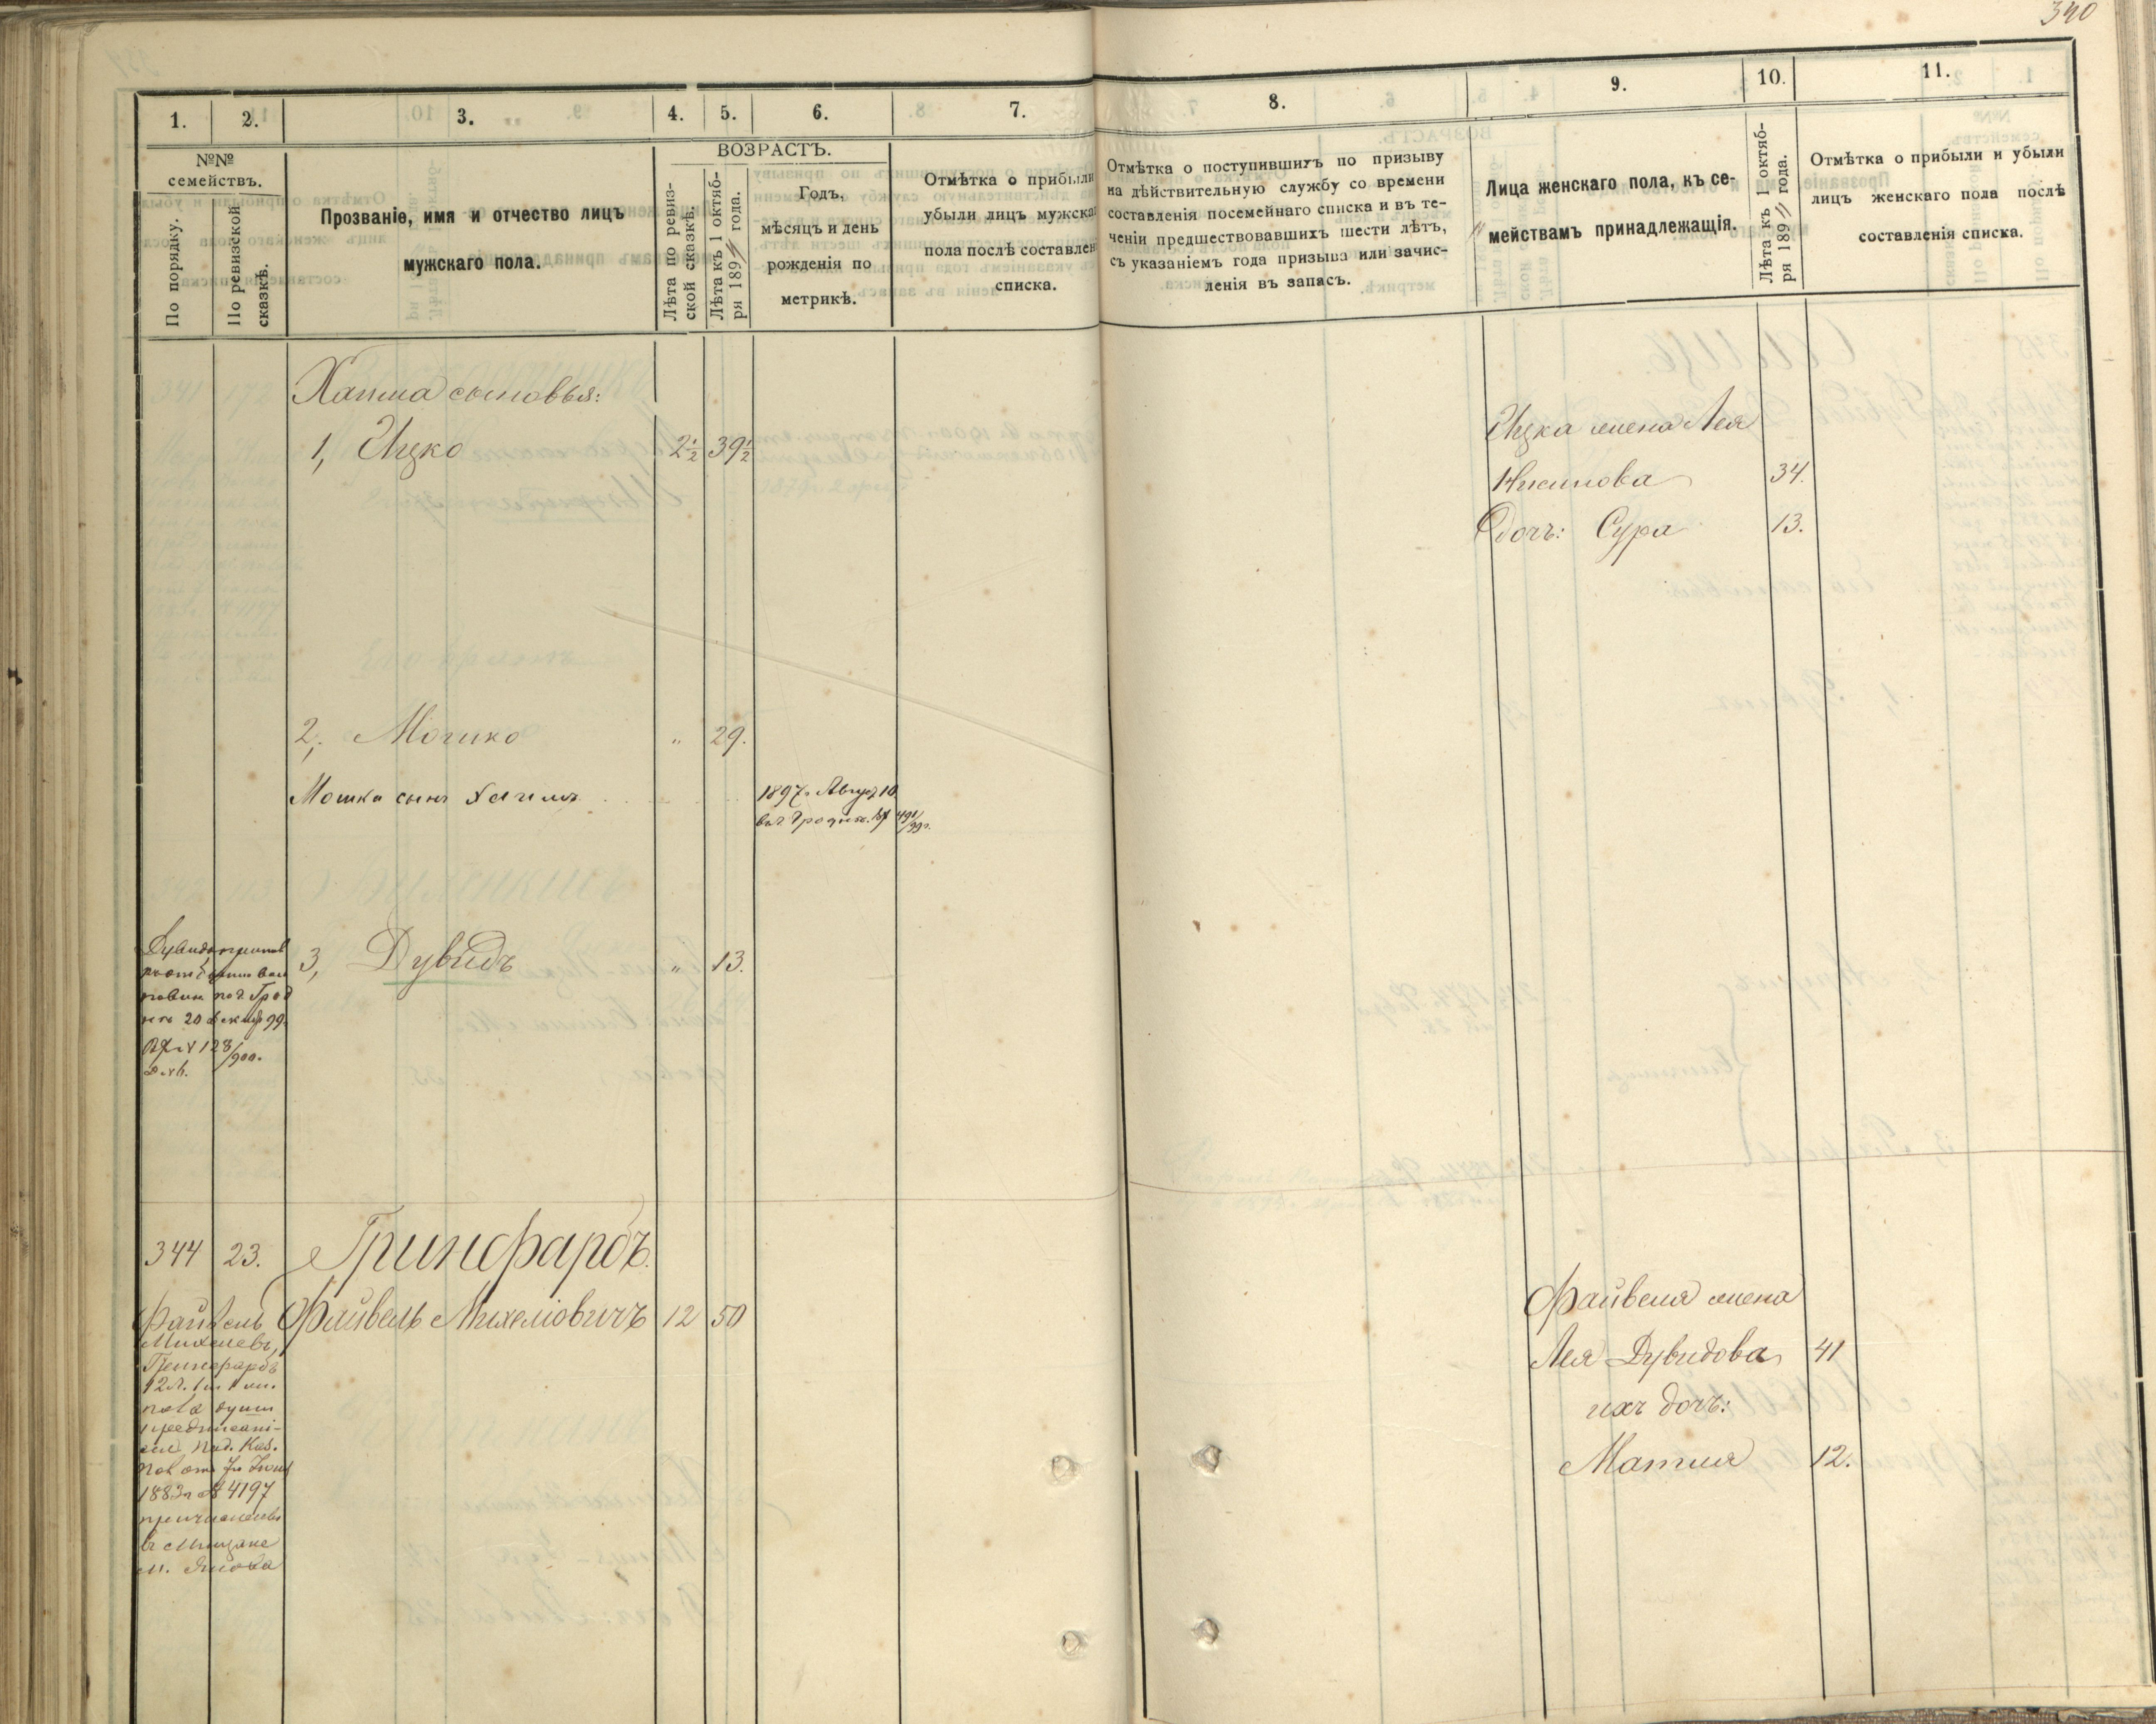 340
1. 2. 3. 4. 5. 6. 7. 8. 9. 10. 11.
№№ семействъ.
По порядку.
По ревизской сказкѣ.
Прозваніе, имя и отчество лицъ
мужскаго пола.
ВОЗРАСТЪ.
Лѣта по ревиз-
ской сказкѣ.
Лѣта къ 1 октяб-
ря 189 года.
Годъ,
мѣсяцъ и день
рожденія по
метрикѣ.
Отмѣтка о прибыли
убыли лицъ мужска
пола послѣ составлен
списка.
Отмѣтка о поступившихъ по призыву
на дѣйствительную службу со времени
составленія посемейнаго списка и въ те-
ченіи предшествовавшихъ шести лѣтъ,
съ указаніемъ года призыва или зачис-
ленія въ запасъ.
Лица женскаго пола, къ се-
мействамъ принадлежащія.
Лѣта къ 1 октяб-
ря 189 года.
Отмѣтка о прибыли и убыли
лицъ женскаго пола послѣ
составленія списка.
сыновья:
1, Ицко 2½ 39½
Ицка жена Лея
34.
дочь: Сура 13.
2, Мошко " 29.
Мошка сынъ
1897 г. 10
3, Дувидъ " 13.
20 99
128/900.
344 23. Гринфарбъ.
Файвель Михелiовичъ 12 50
Файвель
Михелевъ,
Гринфарбъ
12 л.
душ
Каз.
1883 г. № 4197
въ мещане
м. Янова
Файвеля жена
Лея Дувидова 41
ихъ дочь:
Матля 12.